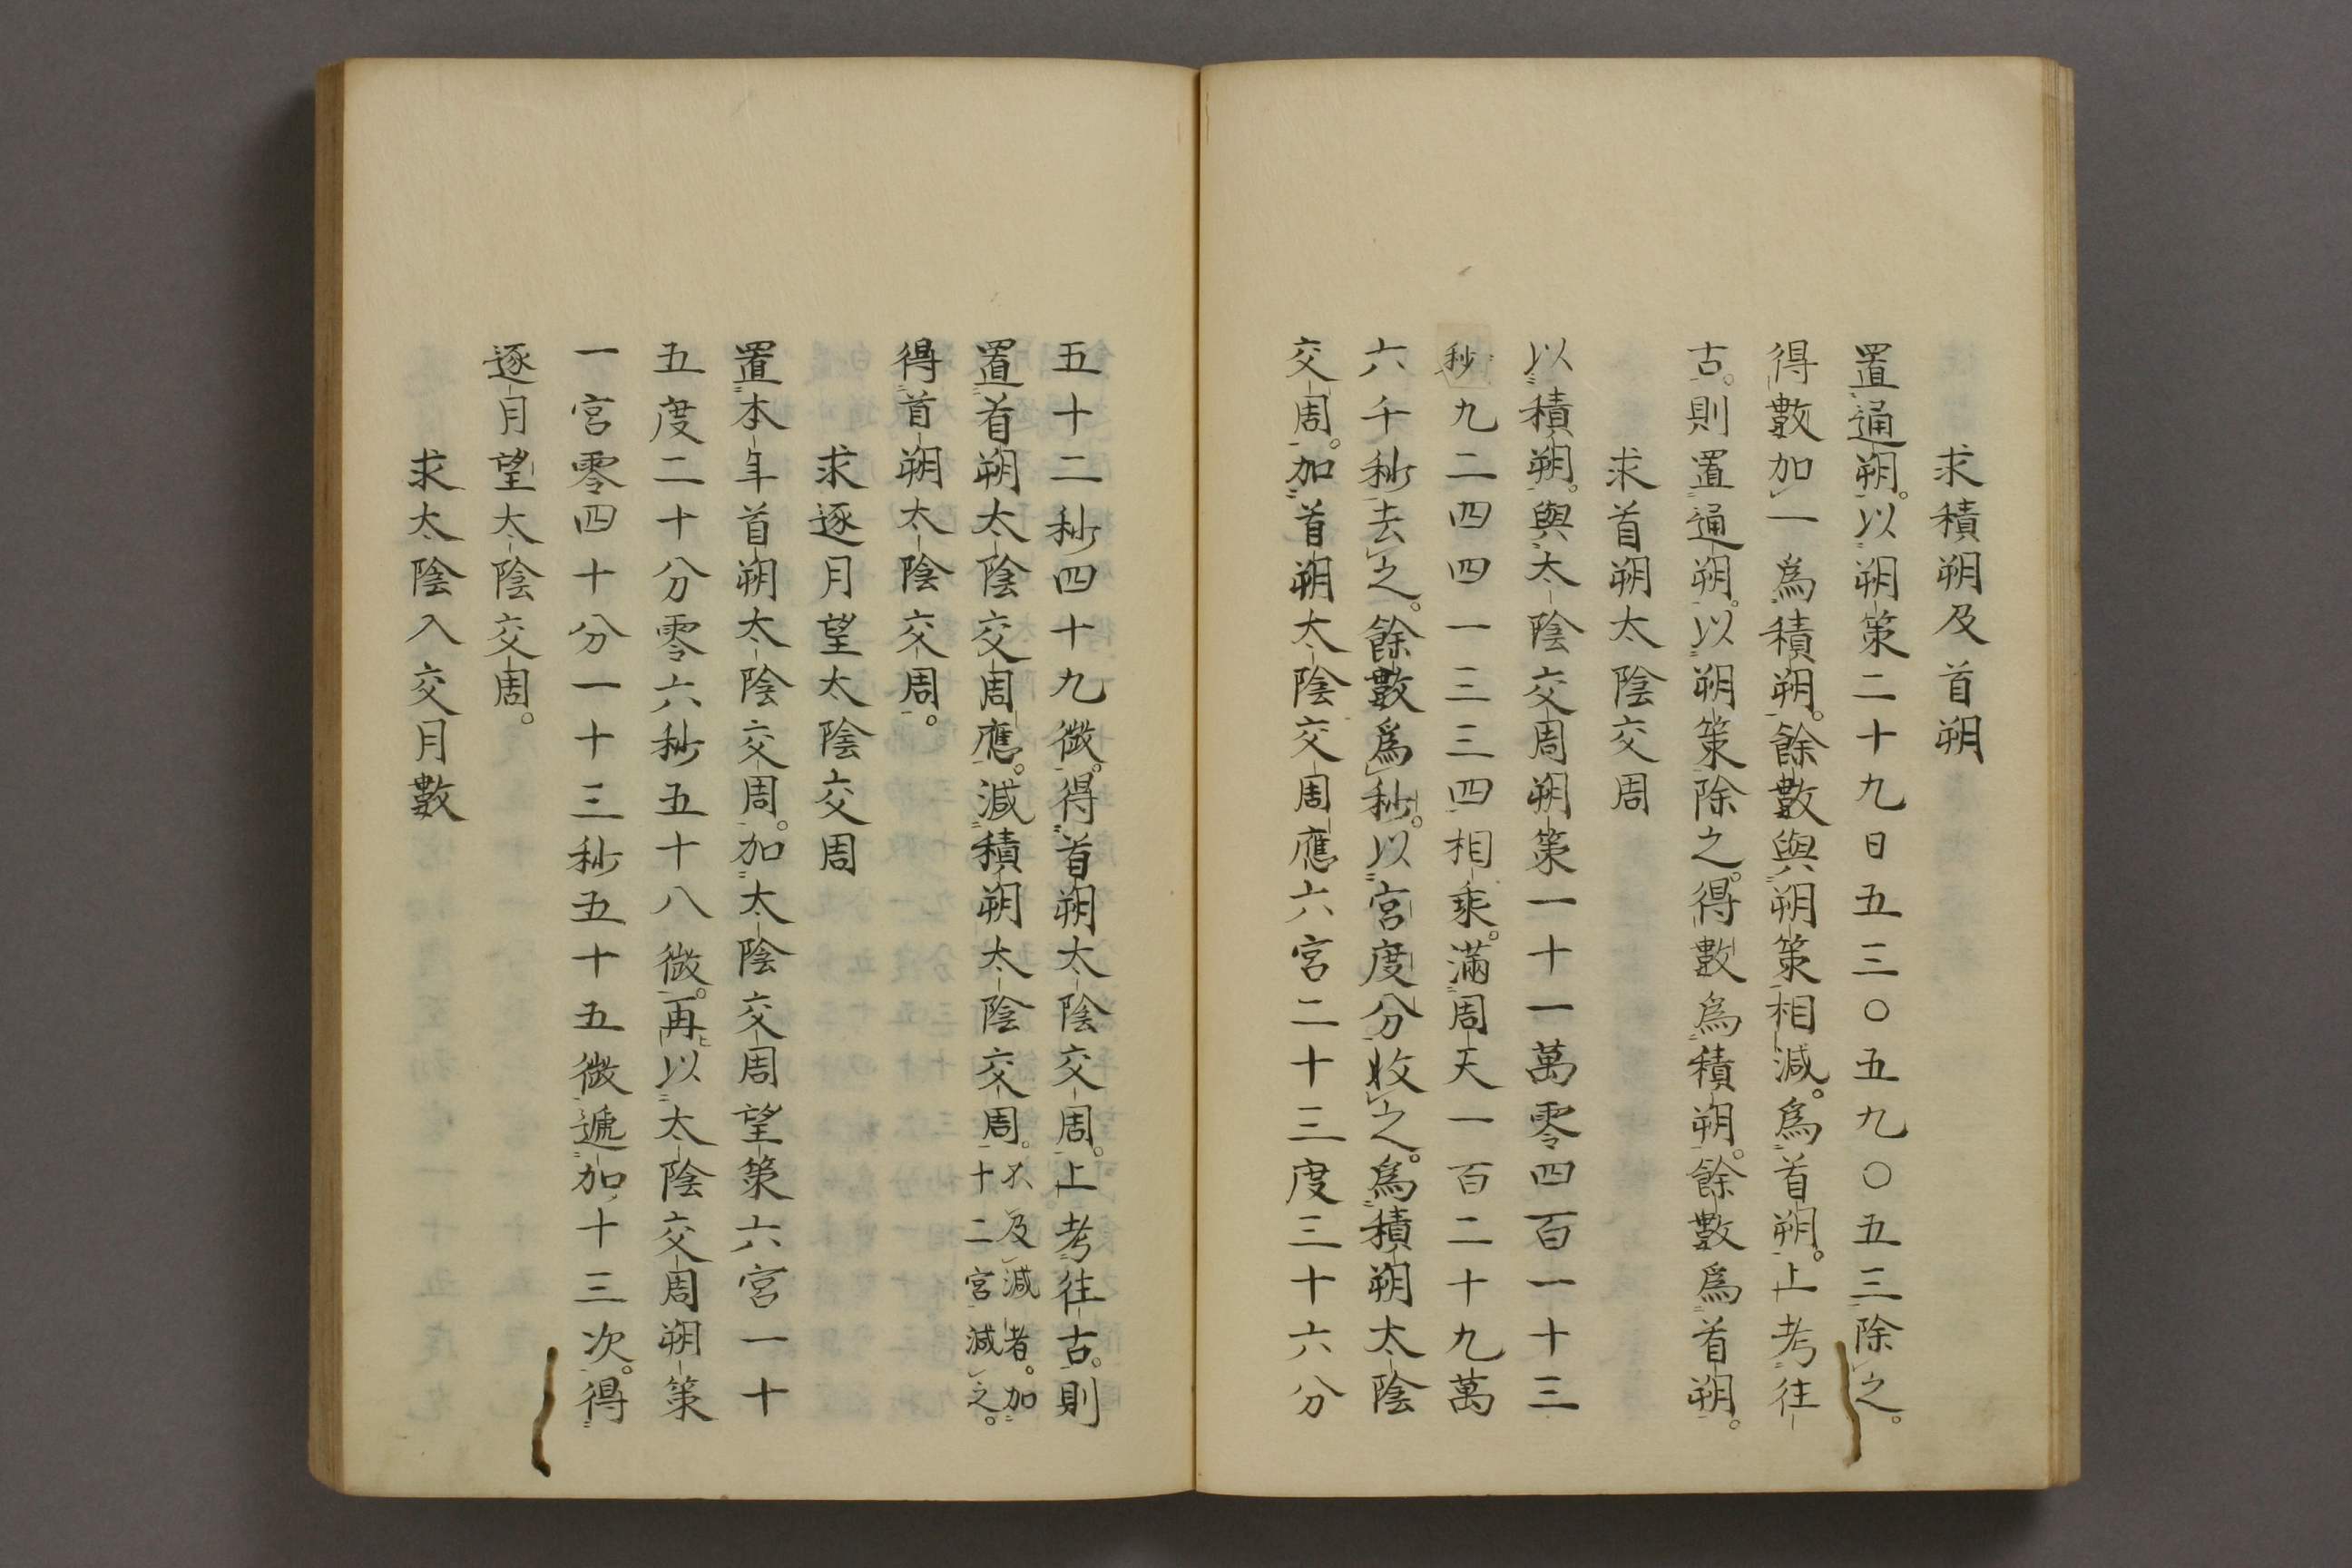 求積朔及首朔
置通朔。以朔策二十九日五三〇五九〇五三除之。
得數加一爲積朔。餘數與朔策相減。爲首朔。上考往
古。則置通朔。以朔策除之。得數爲積朔。餘數爲首朔。
求首朔太陰交周
以積朔。與太陰交周朔策一十一萬零四百一十三
秒九二四四一三三四相乘。滿周天一百二十九萬
六千秒去之。餘數爲秒。以宮度分收之。爲積朔太陰
交周。加首朔太陰交周應六宮二十三度三十六分
五十二秒四十九微。得首朔太陰交周。上考往古。則
置首朔太陰交周應。減積朔太陰交周。不及減者。加
十二宮減之。
得首朔太陰交周。
求逐月望太陰交周
置本年首朔太陰交周。加太陰交周望策六宮一十
五度二十分零六秒五十八微。再以太陰交周朔策
一宮零四十分一十三秒五十五微遞加十三次。得
逐月望太陰交周。
求太陰入交月數